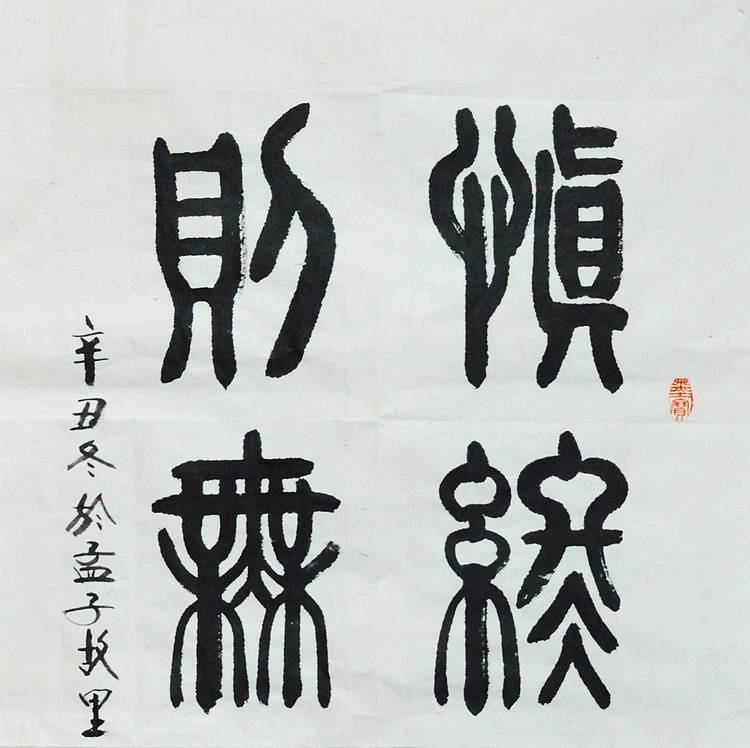 墨寶
慎終
則無
辛丑冬於孟子故里